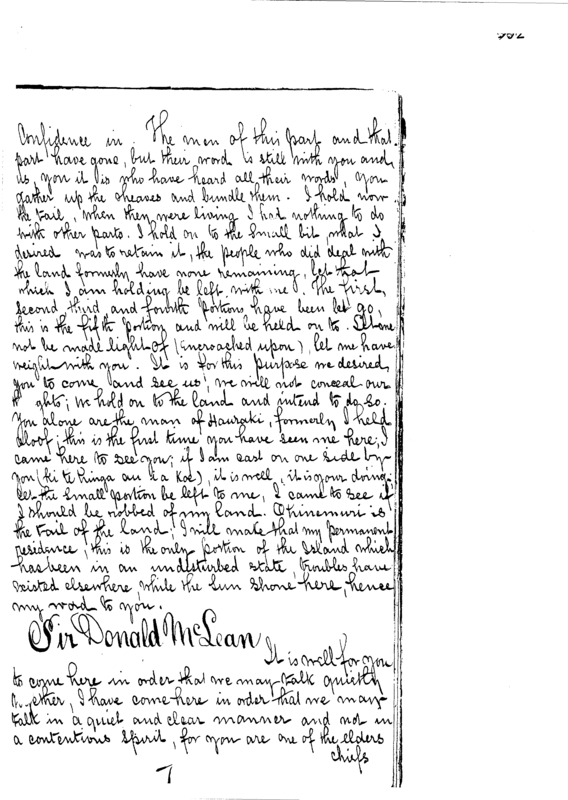 Confidence in. The men of this part and that
part have gone, but their word is still with you and
us, you it is who have heard all their words, you
gather up the sheaves and bundle them. I hold now
the tail, when they were living I had nothing to do
with other parts. I hold on to the small bit, what I
desired was to retain it, the people who did deal with
the land formerly have none remaining, let that
which I am holding be left with me. The first,
second third, and fourth portions have been let go,
this is the fifth portion and will be held on to. Let me
not be made light of (encroached upon), let me have
weight with you. It is for this purpose we desired
you to come and see us, we will not conceal our
ghts; we hold on to the land and intend to do so.
You alone are the man of Hauraki, formerly I held
aloof; this is the first time you have seen me here; I
came here to see you; if I am cast on one side by
you (ki te hinga au i a koe), it is well, it is your doing.
Let the small portion be left to me, I came to see if
I should be robbed of my land. Ohinemuri is
the tail of the land; I will make that my permanent
residence, this is the only portion of the Island which
has been in an undisturbed state, troubles have
existed elsewhere, while the sun shone here, hence
my word to you.
Sir Donald McLean
It is well for you
to come here in order that we may talk quietly
ether, I have come here in order that we may
talk in a quiet and clear manner and not in
a contentious spirit, for you are one of the elders
chiefs
7